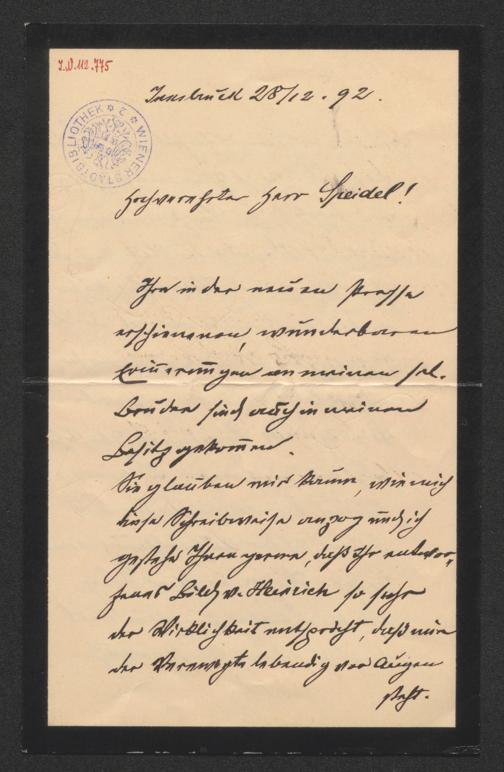 I.N. 112.775
WIENER STADTBIBLIOTHEK
Innsbruck 28/12. 92.
Hochverehrter Herr Speidel!
Ihre in der neuen Presse
erschienenen, wunderbaren
Erinnerungen an meinen sel.
Bruder sind auch in meinen
Besitz gekommen.
Sie glauben mir kaum, wie mich
diese Schreibweise anzog und ich
gestehe Ihnen gerne, daß Ihr entwor-
fenes Bild v. Heinrich so sehr
der Wirklichkeit entspricht, daß mir
der Verewigte lebendig vor Augen
steht.